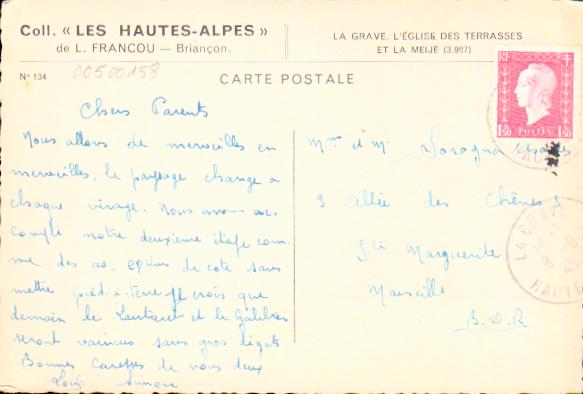 Coll. « LES HAUTES-ALPES »
de L. FRANCOU — Briançon.
LA GRAVE. L'ÉGLISE DES TERRASSES
ET LA MEIJE (3.987)
N° 134
00500158
CARTE POSTALE
RF
1,50 POSTES 1,50
LA GRAVE
Chers Parents
Nous allons de merveilles en
merveilles, le paysage change à
chaque virage. Nous avons ac
compli notre deuxième étape com
me des as: kms de cote sans
mettre pied-à-terre. Je crois que
demain le Lautaret et le Galibier
seront vaincus sans gros dégats
Bonnes Caresses de nous deux
Mme et M.
3 Allée des Chênes
Ste Marguerite
Marseille
B.D.R